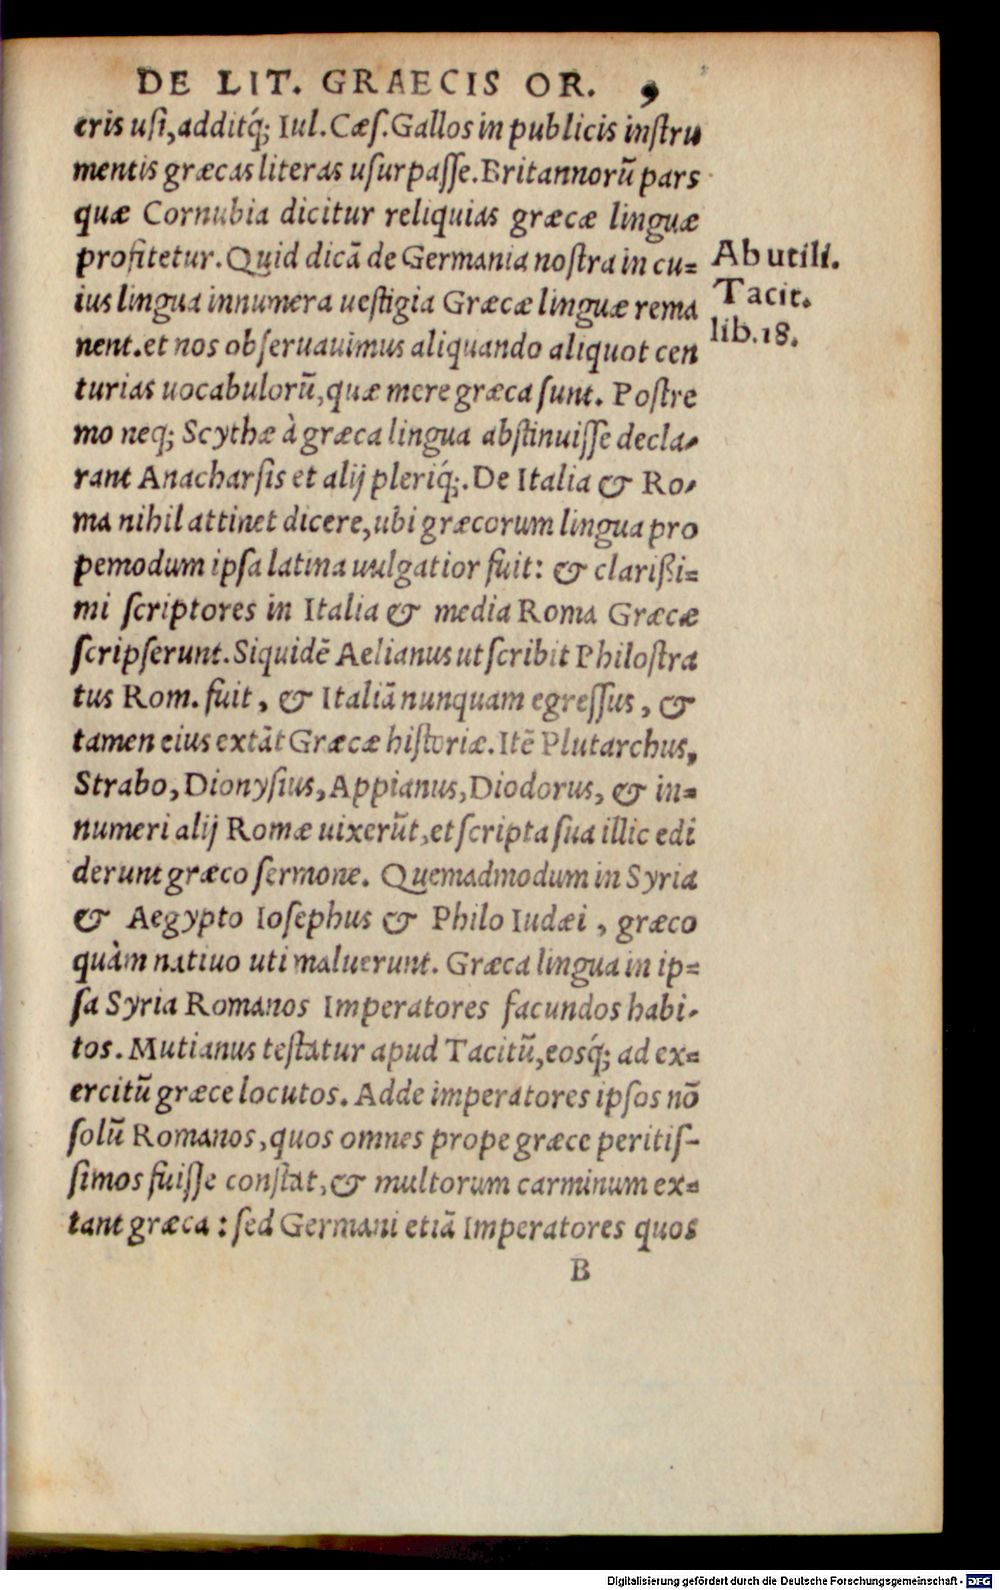 DE LIT. GRAECIS OR. 9
eris uſi, additq́; Iul. Cæſ. Gallos in publicis inſtru
mentis græcas literas uſurpaſſe. Britannorũ pars
quæ Cornubia dicitur reliquias græcæ linguæ
profitetur. Quid dicã de Germania noſtra in cu=
ius lingua innumera ueſtigia Græcæ linguæ rema
nent. et nos obſeruauimus aliquando aliquot cen
turias uocabulorũ, quæ mere græca ſunt. Poſtre
mo neq; Scythæ à græca lingua abſtinuiſſe decla-
rant Anacharſis et alij pleriq́;. De Italia & Ro-
ma nihil attinet dicere, ubi græcorum lingua pro
pemodum ipſa latina uulgatior fuit: & clarißi=
mi ſcriptores in Italia & media Roma Græcæ
ſcripſerunt. Siquidẽ Aelianus ut ſcribit Philoſtra
tus Rom. fuit, & Italiã nunquam egreſſus, &
tamen eius extãt Græcæ hiſtoriæ. Itẽ Plutarchus,
Strabo, Dionyſius, Appianus, Diodorus, & in=
numeri alij Romæ uixerũt, et ſcripta ſua illic edi
derunt græco ſermone. Quemadmodum in Syria
& Aegypto Ioſephus & Philo Iudæi, græco
quàm natiuo uti maluerunt. Græca lingua in ip=
ſa Syria Romanos Imperatores facundos habi-
tos. Mutianus teſtatur apud Tacitũ, eosq́; ad ex=
ercitũ græce locutos. Adde imperatores ipſos nõ
ſolũ Romanos, quos omnes prope græce peritiſ-
ſimos fuiſſe conſtat, & multorum carminum ex=
tant græca: ſed Germani etiã Imperatores quos
B
Ab utili.
Tacit.
lib. 18.
Digitalisierung gefördert durch die Deutsche Forschungsgemeinschaft - DFG